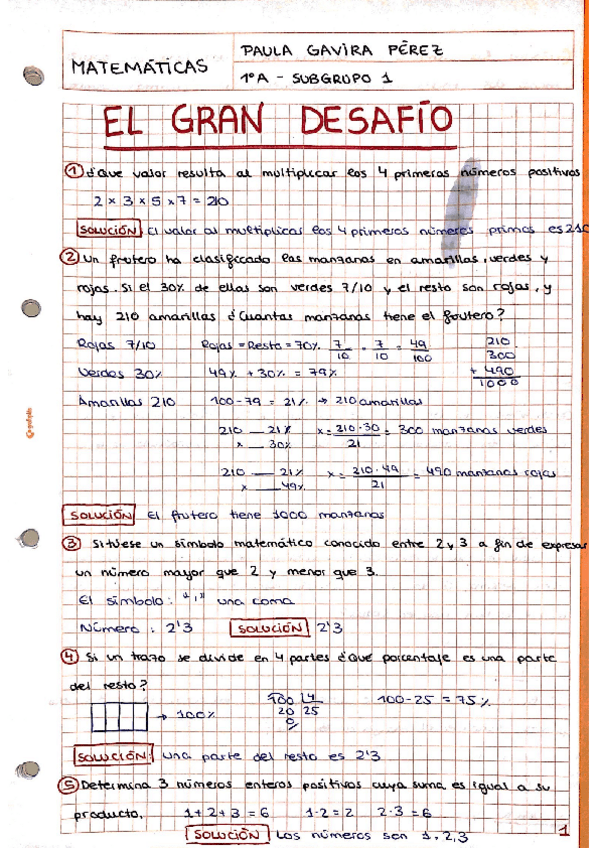 MATEMÁTICAS
PAULA GAVIRA PÉREZ
1ºA - SUBGRUPO 1
EL GRAN DESAFÍO
1 ¿Que valor resulta al multiplicar los 4 primeros números positivos
2 x 3 x 5 x 7 = 210
SOLUCIÓN El valor al multiplicas los 4 primeros números primos es 210
2 Un frutero ha clasificado las manzanas en amarillas, verdes y
rojas. Si el 30% de ellas son verdes 7/10 y el resto son rojas, y
hay 210 amarillas ¿Cuantas manzanas tiene el frutero?
Rojas 7/10 Rojas = Resto = 70% 7/10 · 7/10 = 49/100 210
Verdes 30% 49% + 30% = 79% 300
+ 490
1000
Amarillas 210 100 - 79 = 21% → 210 amarillas
210 __ 21% x = 210·30 / 21 = 300 manzanas verdes
x __ 30%
210 __ 21% x = 210·49 / 21 = 490 manzanas rojas
x __ 49%
SOLUCIÓN El frutero tiene 1000 manzanas
3 Sitúese un símbolo matemático conocido entre 2 y 3 a fin de expresar
un número mayor que 2 y menor que 3.
El símbolo: "," una coma
Número: 2'3 SOLUCIÓN 2'3
4 Si un trazo se divide en 4 partes ¿Qué porcentaje es una parte
del resto?
→ 100% 100 4 100-25 = 75%
20 25
0
SOLUCIÓN: Una parte del resto es 2'3
5 Determina 3 números enteros positivos cuya suma es igual a su
producto. 1+2+3 = 6 1·2 = 2 2·3 = 6
SOLUCIÓN Los números son 1, 2, 3
1